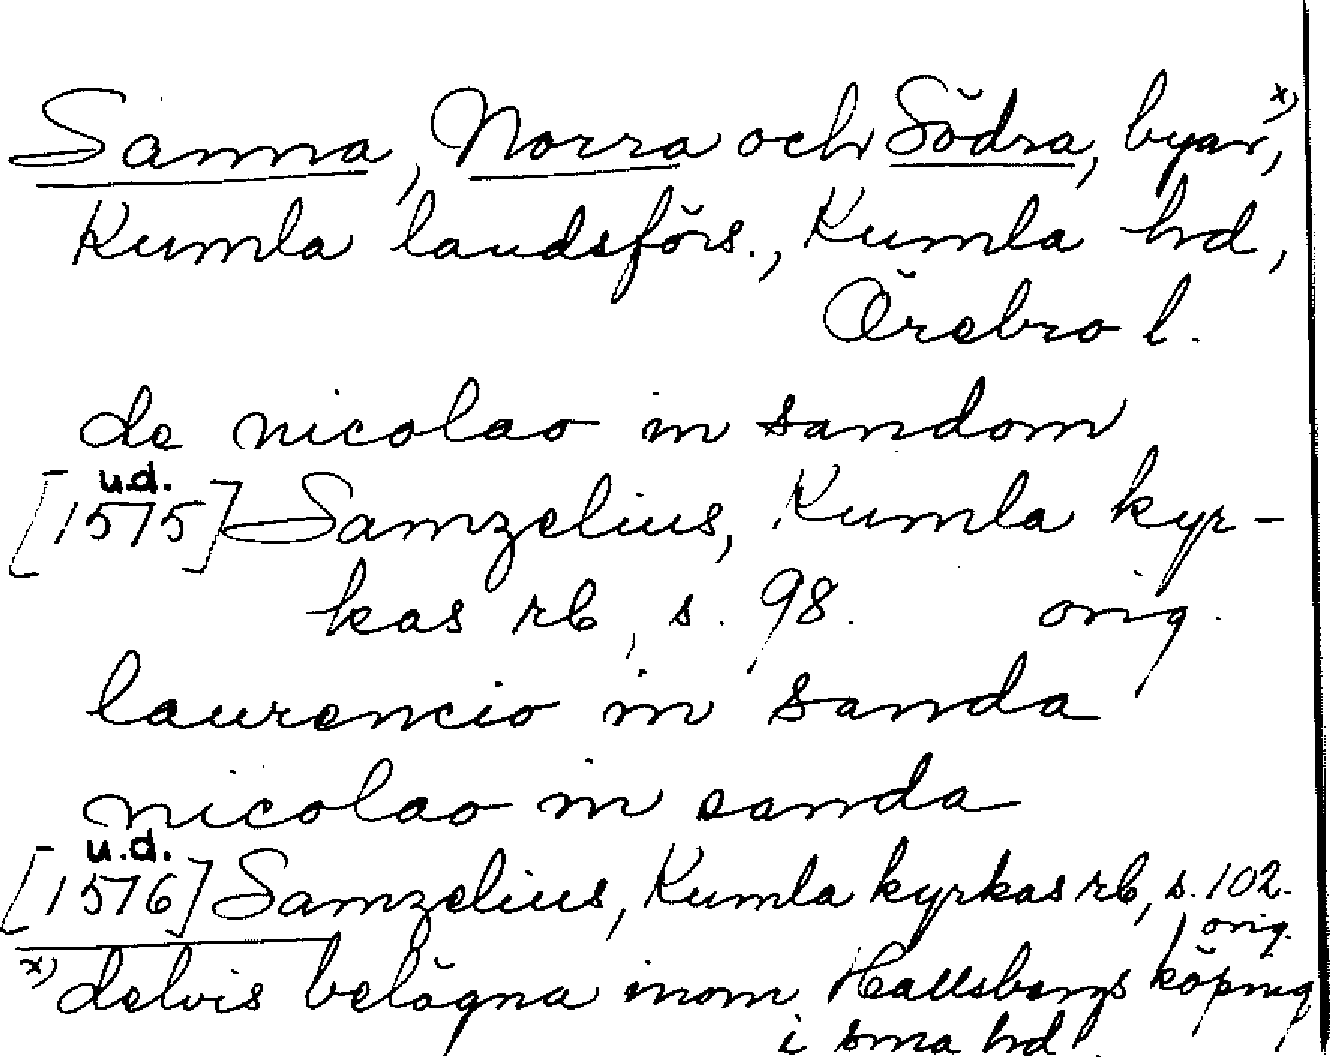 Sanna, Norra och Södra, byar x),
Kumla landsförs., Kumla hd,
Örebro l.
de nicolao in sandom
u.d.
[1575] Samzelius, Kumla kyr-
kas rb, s. 98. orig.
laurencio in sanda
nicolao in sanda
u.d.
[1576] Samzelius, Kumla kyrkas rb, s. 102.
orig.
x) delvis belägna inom Hallsbergs köping
i sma hd